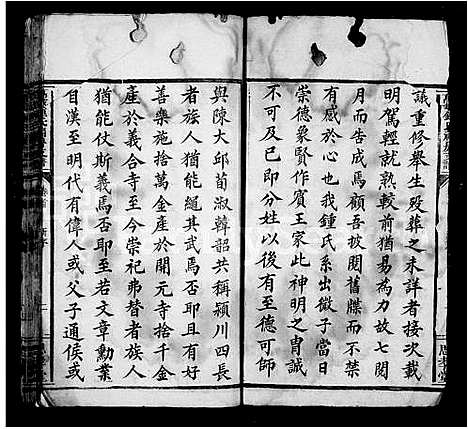 議重修舉生歿葬之未詳者接次載
明駕輕就熟較前猶易為力故七閱
月而告成焉顧吾披閱舊牒而不禁
有感於心也我鍾氏系出微子當日
崇德象賢作賓王家此神明之胄誠
不可及已即分姓以後有至德可師
與陳大邱荀淑韓韶共稱潁川四長
者族人猶能繩其武焉否耶且有好
善樂施捨萬金產於開元寺捨千金
產於義合寺至今崇祀弗替者族人
猶能仗斯義焉否耶至若文章勳業
自漢至明代有偉人或父子通候或